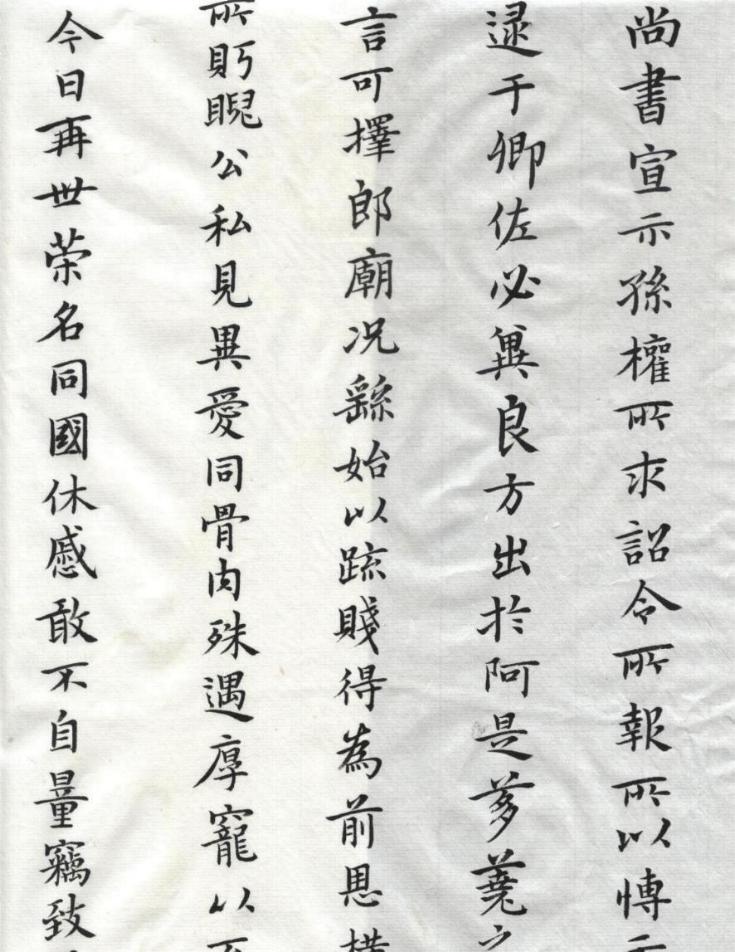 尚書宣示孫權所求詔令所報所以愽示
逮于卿佐必冀良方出於阿是芻蕘之
言可擇郎廟况繇始以疏賤得為前恩橫
所眄睨公私見異愛同骨肉殊遇厚寵以至
今日再世荣名同國休慼敢不自量竊致